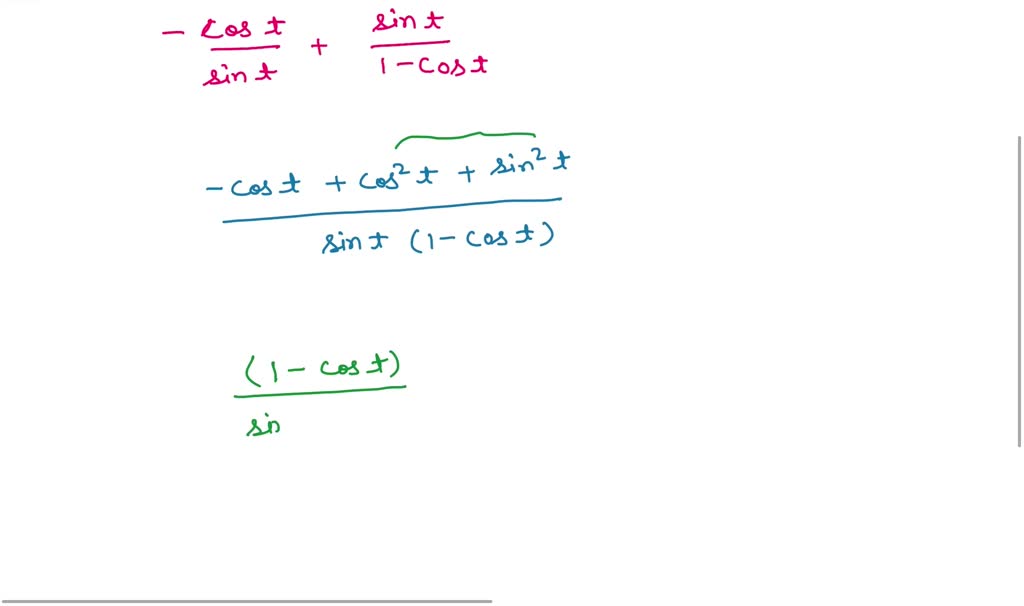 - cos t / sin t + sin t / 1 - cos t
- cos t + cos² t + sin² t / sin t (1 - cos t)
(1 - cos t) / sin